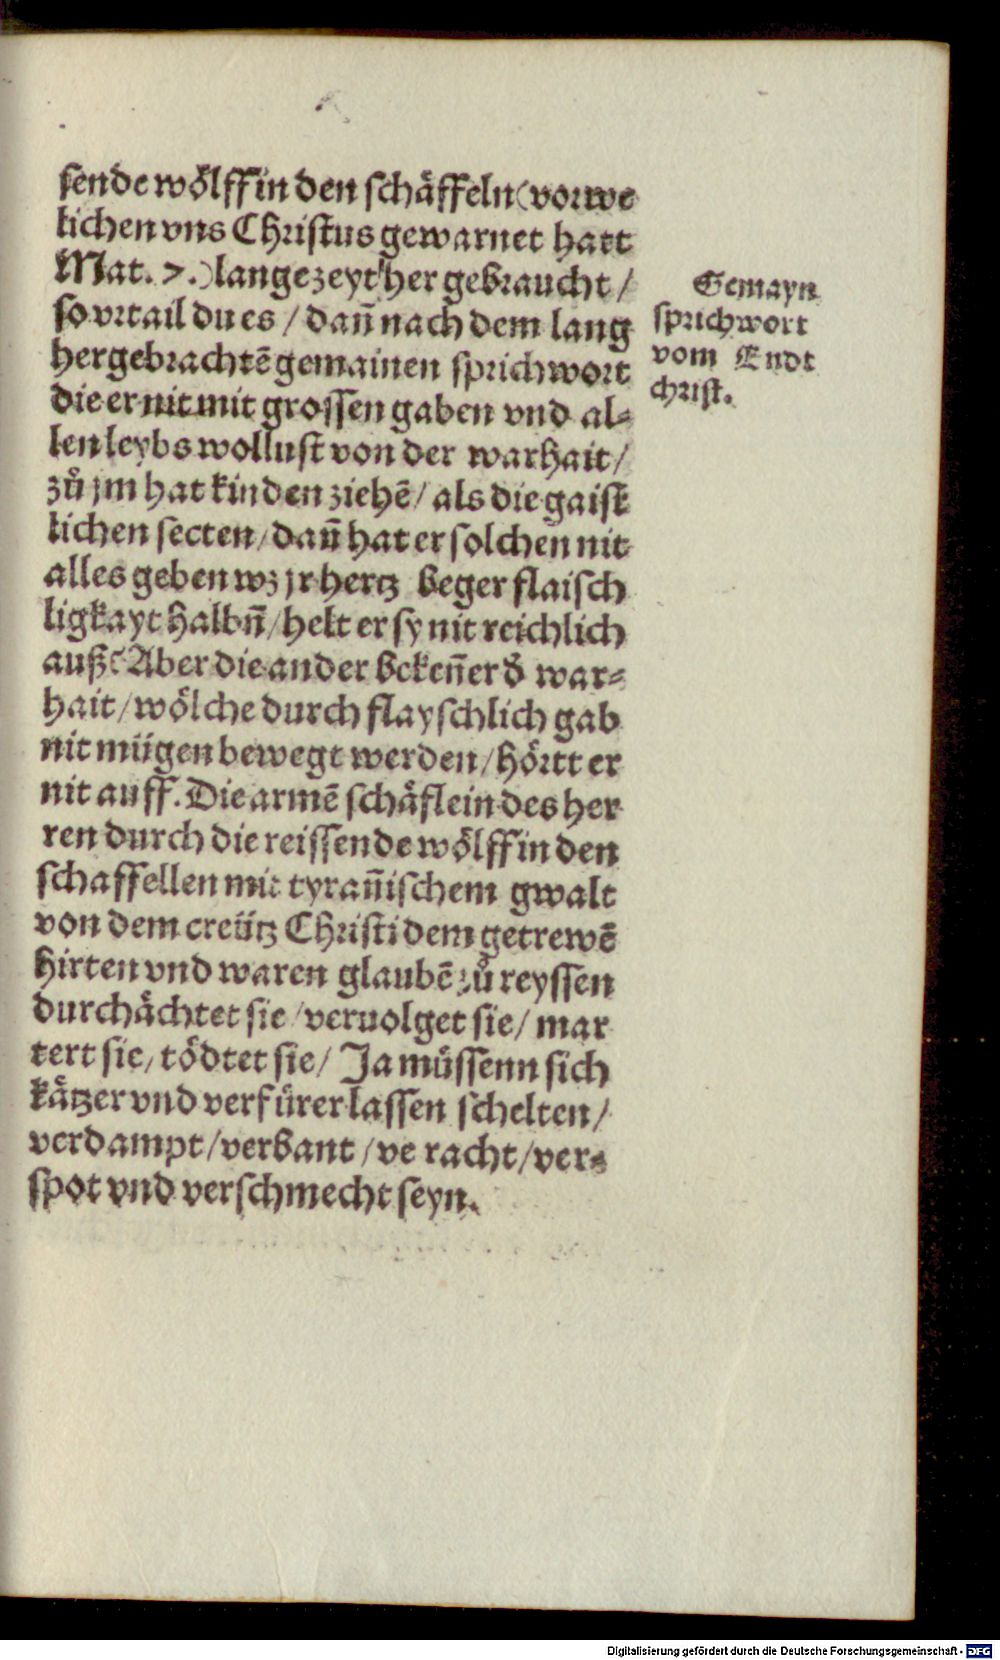 sende wölff in den schäffeln (vor we
lichen vns Christus gewarnet hatt
Mat. 7.) lange zeyt her gebraucht /
so vrtail du es / dañ nach dem lang
hergebrachtē gemainen sprichwort
die er nit mit grossen gaben vnd al⸗
len leybs wollust von der warhait /
zů jm hat kinden ziehē / als die gaist
lichen secten / dañ hat er solchen nit
alles geben wz jr hertz beger flaisch
ligkayt halbñ / helt er sy nit reichlich
auß? Aber die ander bekeñer d̓ war⸗
hait / wölche durch flayschlich gab
nit mügen bewegt werden / hörtt er
nit auff. Die armē schäflein des her
ren durch die reissende wölff in den
schaffellen mit tyrañischem gwalt
von dem creütz Christi dem getrewē
hirten vnd waren glaubē zů reyssen
durchächtet sie / veruolget sie / mar
tert sie / tödtet sie / Ja müssenn sich
kätzer vnd verfürer lassen schelten /
verdampt / verbant / ve racht / ver⸗
spot vnd verschmecht seyn.
Gemayn
sprichwort
vom Endt
christ.
Digitalisierung gefördert durch die Deutsche Forschungsgemeinschaft - DFG